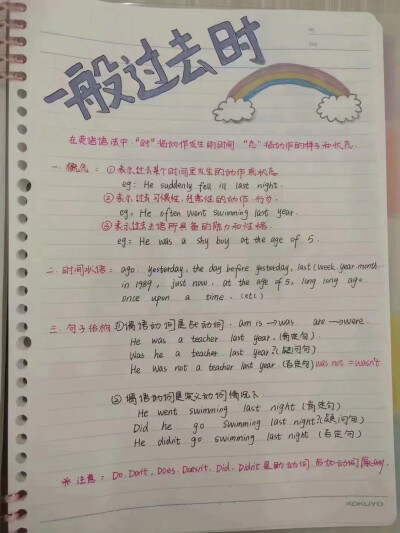 一般过去时
在英语语法中，"时"指动作发生的时间，"态"指动作的样子和状态.
一. 概念：①表示过去某个时间里发生的动作或状态
eg: He suddenly fell ill last night.
②表示过去习惯性、经常性的动作、行为
eg: He often went swimming last year.
③表示过去主语所具备的能力和性格.
eg: He was a shy boy at the age of 5.
二. 时间状语：ago. yesterday, the day before yesterday, last (week. year. month
in 1989, just now, at the age of 5, long long ago
once upon a time. (etc)
三. 句子结构 ①谓语动词是Be动词. am is → was. are → were.
He was a teacher last year. (肯定句)
Was he a teacher last year? (疑问句)
He was not a teacher last year (否定句) was not = wasn't
② 谓语动词是实义动词情况下
He went swimming last night (肯定句)
Did he go swimming last night? (疑问句)
He didn't go swimming last night (否定句)
※ 注意：Do. Don't. Does. Doesn't. Did. Didn't 是助动词. 后加动词原
KOKUYO